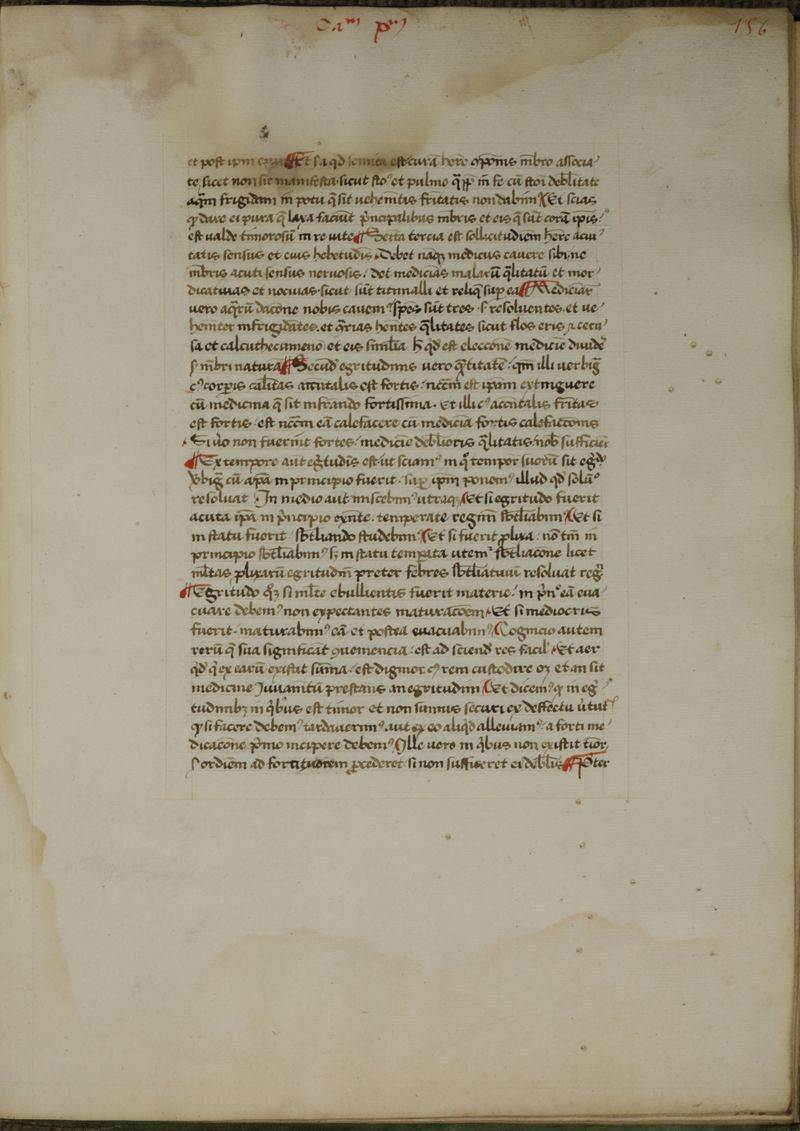 Caᵐ pᵐ
156
et post ipm ¶ Et s̄a qd̄ semita est cura hēre oponis mb̄ro associa
te, licet non sit manifesta. sicut sto⁹ et pulmo q̄ m̄ fe cū stoi debilitate
aq̄m frigidam in potu q̄ sit uehemitis fritatis non dabim⁹ ¶ Et scias
ꝙ dare ei pura q̄ laxa faciūt p̄ncipalibus mb̄ris et eis q̄ sūt corū ipis
est ualde timorosū in re uite ¶ Scita tercia est sollicitudiem hēre acui
tatis sensus et eius hebetudis. Debet naq medicus cauere sibi ne
mb̄ris acuti sensus neruosis. det medicias malarū q̄litatū et mor
dicatiuas et nociuas. sicut sūt titimalli et reliq̄ sup ea ¶ Mediciar
uero aq̄rū dacōne nobis cauem⁹ sp̄es sūt tres. s resoluentes. et ue
hemter infrigidātes. et q̄rias hentes q̄litates sicut flos eris et ceru
sa et calcuthecumeno et eis similia h̄ qd̄ est eleccōne medicie diuide
s mb̄ri natura ¶ Secūd egritudinis uero q̄titatē. qm illi uerbig̅
c⁹ corpis calītas accntalis est fortis. neccm̄ est ipam extinguere
cū medicina q̄ sit infrando fortissima. Et illi c⁹ accntalis fritas
est fortis. est neccm̄ eā calefacere cū medicia fortis calefaccōnis
Si uō non fuerint fortes. medicie debilioris q̄litatis nob sufficiet
¶ Ex tempore aut egtudis est ut sciam⁹ in q̄ tempor suorū sit egdo
ūbig̅ cū apā in principio fuerit. sup ipm ponem⁹ illud qd̄ solū
resoluat In medio aut miscebim⁹ utraq. ¶ Et si egritudo fuerit
acuta ipā in p̄ncipio exn̄te. temperate regim̄ sbtliabim⁹ ¶ Et si
in statu fūerit sbtliando studebim⁹ ¶ Et si fuerit plixa. nō tm̄ in
principio sbtliabim⁹ s; in statu tempata utem⁹ sbtliacōne licet
ml̄tas plixarū egritudm̄ preter febres sbtliatiuū resoluat reg̅
¶ Egritudo q; si ml̄te ebullientis fuerit materie. in p̄n⁰ eā eua
cuare debem⁹ non expectantes maturacōem. Et si mediocris
fuerit. maturabim⁹ eā et postea euacuabim⁹ ¶ Cognicio autem
rerū q̄ sua significāt quemencia. est ad sciend res facil. Et aer
qd̄ q̄ ex earū existit sūma. est digmor c⁹ rem custodire o; et an sit
medicine Juuamtū prestans an egritudini ¶ Et dicem⁹ ꝙ in eg̅
tudinib; in q̄bus est timor et non sumus securi ex deffectu ūtut
ꝙ si facere debem⁹ tardauerim⁹. aut ex eo aliqd̄ alleuiam⁹. a forti me
dicacōne p̄mo incipere debem⁹ ¶ Ille uero in q̄bus non existit tior,
s ordiem ad fortitudinem pcederet si non sufficeret ei debilis ¶ Pter